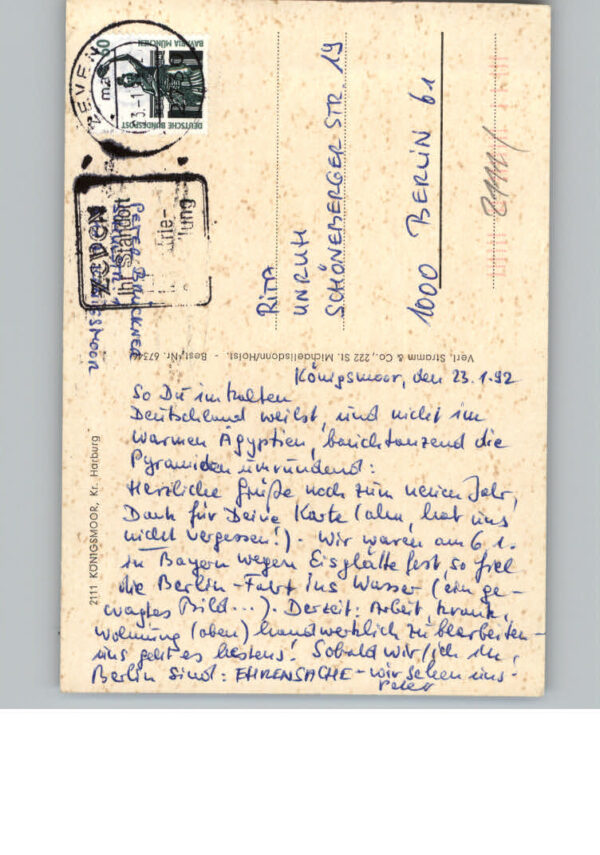 Königsmoor, den 23.1.92
So Du im kalten
Deutschland weilst, und nicht im
warmen Ägypten, bauchtanzend die
Pyramiden umrundend:
Herzliche Grüße noch zum neuen Jahr,
Dank für Deine Karte (aha, hat uns
nicht vergessen!). Wir waren am 6.1.
in Bayern wegen Eisglätte fest, so fiel
die Berlin-Fahrt ins Wasser (ein ge-
wagtes Bild...). Derzeit: Arbeit,
Wohnung (oben) handwerklich zu bearbeiten -
uns geht es bestens! Sobald wir/ich in
Berlin sind: EHRENSACHE - wir sehen uns.
Peter
RITA
UNRUH
SCHÖNEBERGER STR. 19
1000 BERLIN 61
PETER BRUCKNER
ZEVEN
Ihr Standort
ZEVEN
60
DEUTSCHE BUNDESPOST
BAVARIA MÜNCHEN
Verl. Stramm & Co., 222 St. Michaelisdonn/Holst. - Best.-Nr.
2111 KÖNIGSMOOR, Kr. Harburg